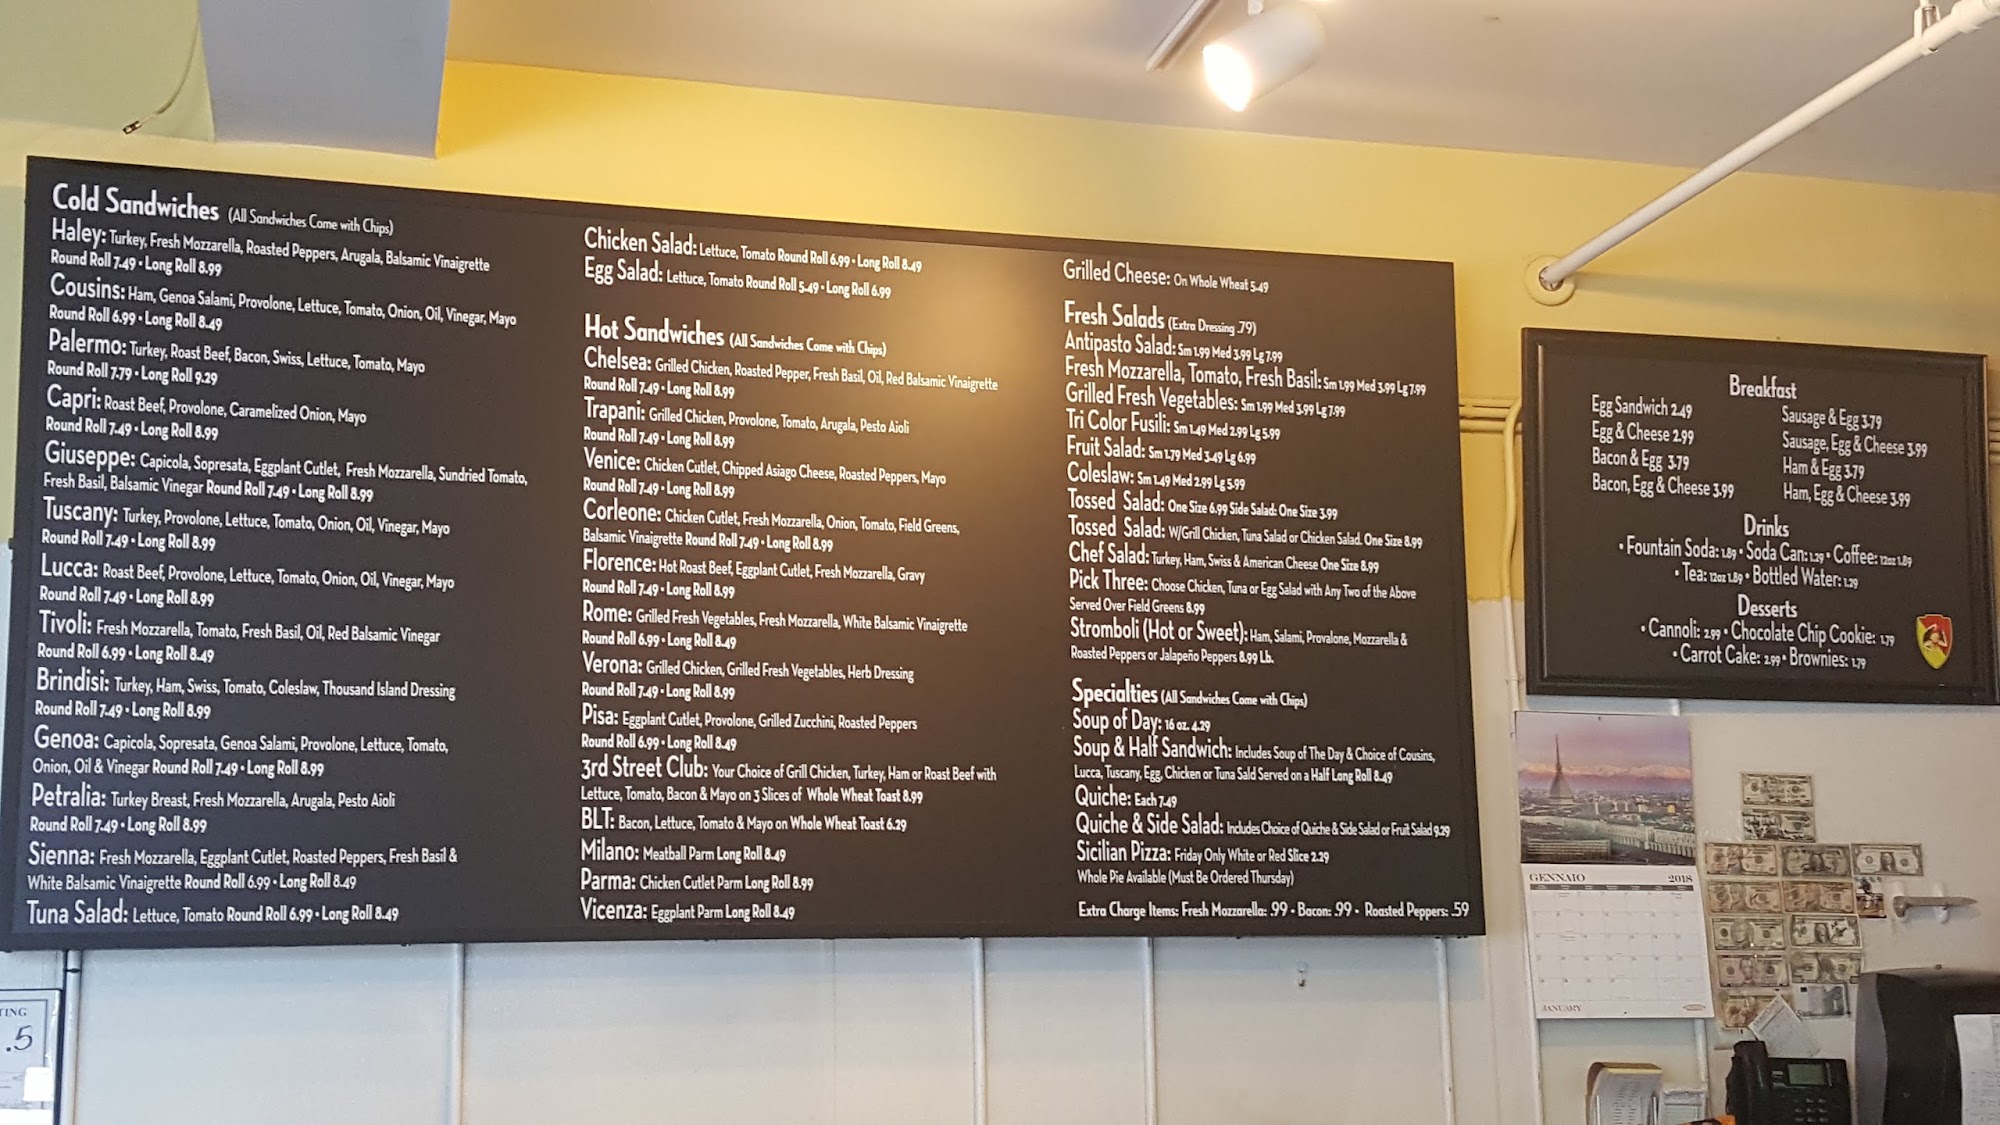 Cold Sandwiches (All Sandwiches Come with Chips)
Haley: Turkey, Fresh Mozzarella, Roasted Peppers, Arugala, Balsamic Vinaigrette
Round Roll 7.49 • Long Roll 8.99
Cousins: Ham, Genoa Salami, Provolone, Lettuce, Tomato, Onion, Oil, Vinegar, Mayo
Round Roll 6.99 • Long Roll 8.49
Palermo: Turkey, Roast Beef, Bacon, Swiss, Lettuce, Tomato, Mayo
Round Roll 7.79 • Long Roll 9.29
Capri: Roast Beef, Provolone, Caramelized Onion, Mayo
Round Roll 7.49 • Long Roll 8.99
Giuseppe: Capicola, Sopresata, Eggplant Cutlet, Fresh Mozzarella, Sundried Tomato,
Fresh Basil, Balsamic Vinegar Round Roll 7.49 • Long Roll 8.99
Tuscany: Turkey, Provolone, Lettuce, Tomato, Onion, Oil, Vinegar, Mayo
Round Roll 7.49 • Long Roll 8.99
Lucca: Roast Beef, Provolone, Lettuce, Tomato, Onion, Oil, Vinegar, Mayo
Round Roll 7.49 • Long Roll 8.99
Tivoli: Fresh Mozzarella, Tomato, Fresh Basil, Oil, Red Balsamic Vinegar
Round Roll 6.99 • Long Roll 8.49
Brindisi: Turkey, Ham, Swiss, Tomato, Coleslaw, Thousand Island Dressing
Round Roll 7.49 • Long Roll 8.99
Genoa: Capicola, Sopresata, Genoa Salami, Provolone, Lettuce, Tomato,
Onion, Oil & Vinegar Round Roll 7.49 • Long Roll 8.99
Petralia: Turkey Breast, Fresh Mozzarella, Arugala, Pesto Aioli
Round Roll 7.49 • Long Roll 8.99
Sienna: Fresh Mozzarella, Eggplant Cutlet, Roasted Peppers, Fresh Basil &
White Balsamic Vinaigrette Round Roll 6.99 • Long Roll 8.49
Tuna Salad: Lettuce, Tomato Round Roll 6.99 • Long Roll 8.49
Chicken Salad: Lettuce, Tomato Round Roll 6.99 • Long Roll 8.49
Egg Salad: Lettuce, Tomato Round Roll 5.49 • Long Roll 6.99
Hot Sandwiches (All Sandwiches Come with Chips)
Chelsea: Grilled Chicken, Roasted Pepper, Fresh Basil, Oil, Red Balsamic Vinaigrette
Round Roll 7.49 • Long Roll 8.99
Trapani: Grilled Chicken, Provolone, Tomato, Arugala, Pesto Aioli
Round Roll 7.49 • Long Roll 8.99
Venice: Chicken Cutlet, Chipped Asiago Cheese, Roasted Peppers, Mayo
Round Roll 7.49 • Long Roll 8.99
Corleone: Chicken Cutlet, Fresh Mozzarella, Onion, Tomato, Field Greens,
Balsamic Vinaigrette Round Roll 7.49 • Long Roll 8.99
Florence: Hot Roast Beef, Eggplant Cutlet, Fresh Mozzarella, Gravy
Round Roll 7.49 • Long Roll 8.99
Rome: Grilled Fresh Vegetables, Fresh Mozzarella, White Balsamic Vinaigrette
Round Roll 6.99 • Long Roll 8.49
Verona: Grilled Chicken, Grilled Fresh Vegetables, Herb Dressing
Round Roll 7.49 • Long Roll 8.99
Pisa: Eggplant Cutlet, Provolone, Grilled Zucchini, Roasted Peppers
Round Roll 6.99 • Long Roll 8.49
3rd Street Club: Your Choice of Grill Chicken, Turkey, Ham or Roast Beef with
Lettuce, Tomato, Bacon & Mayo on 3 Slices of Whole Wheat Toast 8.99
BLT: Bacon, Lettuce, Tomato & Mayo on Whole Wheat Toast 6.29
Milano: Meatball Parm Long Roll 8.49
Parma: Chicken Cutlet Parm Long Roll 8.99
Vicenza: Eggplant Parm Long Roll 8.49
Grilled Cheese: On Whole Wheat 5.49
Fresh Salads (Extra Dressing .79)
Antipasto Salad: Sm 1.99 Med 3.99 Lg 7.99
Fresh Mozzarella, Tomato, Fresh Basil: Sm 1.99 Med 3.99 Lg 7.99
Grilled Fresh Vegetables: Sm 1.99 Med 3.99 Lg 7.99
Tri Color Fusili: Sm 1.49 Med 2.99 Lg 5.99
Fruit Salad: Sm 1.79 Med 3.49 Lg 6.99
Coleslaw: Sm 1.49 Med 2.99 Lg 5.99
Tossed Salad: One Size 6.99 Side Salad: One Size 3.99
Tossed Salad: W/Grill Chicken, Tuna Salad or Chicken Salad. One Size 8.99
Chef Salad: Turkey, Ham, Swiss & American Cheese One Size 8.99
Pick Three: Choose Chicken, Tuna or Egg Salad with Any Two of the Above
Served Over Field Greens 8.99
Stromboli (Hot or Sweet): Ham, Salami, Provalone, Mozzarella &
Roasted Peppers or Jalapeño Peppers 8.99 Lb.
Specialties (All Sandwiches Come with Chips)
Soup of Day: 16 oz. 4.29
Soup & Half Sandwich: Includes Soup of The Day & Choice of Cousins,
Lucca, Tuscany, Egg, Chicken or Tuna Sald Served on a Half Long Roll 8.49
Quiche: Each 7.49
Quiche & Side Salad: Includes Choice of Quiche & Side Salad or Fruit Salad 9.29
Sicilian Pizza: Friday Only White or Red Slice 2.29
Whole Pie Available (Must Be Ordered Thursday)
Extra Charge Items: Fresh Mozzarella: .99 • Bacon: .99 • Roasted Peppers: .59
Breakfast
Egg Sandwich 2.49
Egg & Cheese 2.99
Bacon & Egg 3.79
Bacon, Egg & Cheese 3.99
Sausage & Egg 3.79
Sausage, Egg & Cheese 3.99
Ham & Egg 3.79
Ham, Egg & Cheese 3.99
Drinks
• Fountain Soda: 1.89 • Soda Can: 1.29 • Coffee: 12oz 1.89
• Tea: 12oz 1.89 • Bottled Water: 1.29
Desserts
• Cannoli: 2.99 • Chocolate Chip Cookie: 1.79
• Carrot Cake: 2.99 • Brownies: 1.79
GENNAIO 2018
JANUARY
TING
.5